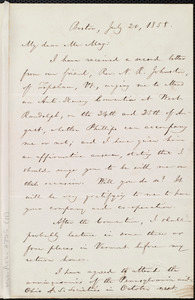 Boston, July 20, 1858.
My dear Mr. May:
I have received a second letter
from our friend, Rev. N. R. Johnston,
of Topsham, Vt., urging me to attend
an Anti-Slavery Convention at West
Randolph, on the 24th and 25th of Au-
gust, whether Phillips can accompany
me or not; and I have given him
an affirmative answer, stating that I
should urge you to be with us on
that occasion. Will you do so? It
will be very gratifying to me to have
your company and co-operation.
After the Convention, I shall
probably lecture in some three or
four places in Vermont, before my
return home.
I have agreed to attend the
anniversaries of the Pennsylvania and
Ohio A. S. Societies in October next